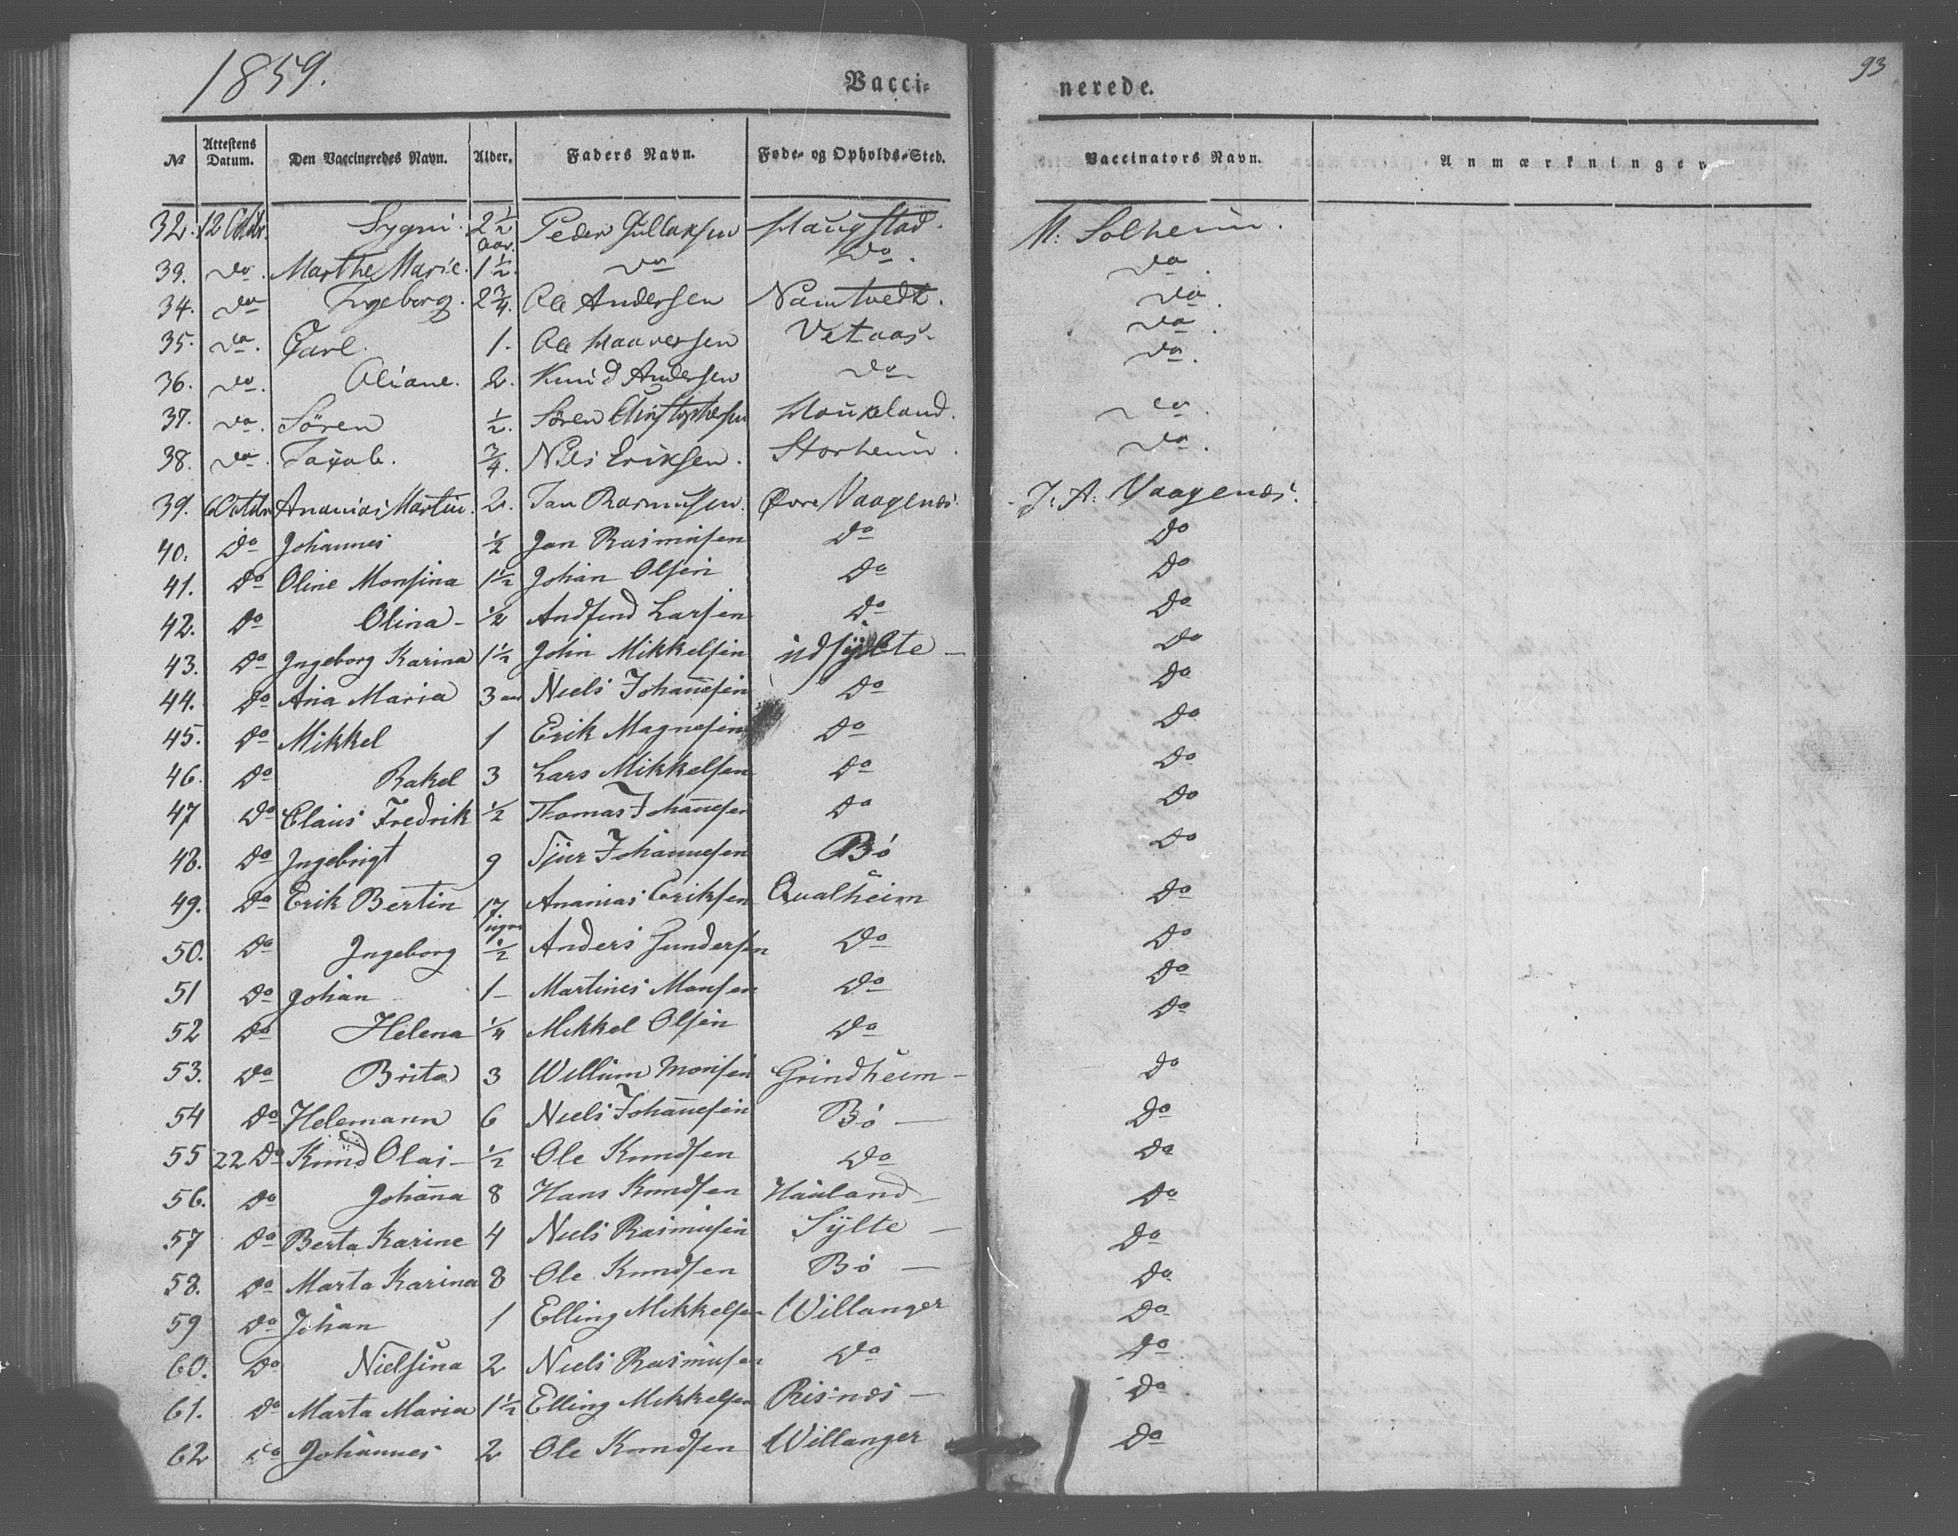 1859.
Vacci-
nerede.
93
№ Attestens Datum. Den Vaccineredes Navn. Alder. Faders Navn. Føde- og Opholds-Sted. Vaccinators Navn. Anmærkninger
32. 12 Sygni 2 1/2 Aar. Peder Gullaksen Haugstad. M. Solheim.
33. do. Marthe Marie. 1 1/2. do do. do.
34. do Ingeborg. 2 3/4. Ole Andersen Namtvedt. do.
35. do. Carl. 1. Ole Haaversen Vetaas. do.
36. do. Oliane. 2. Knud Andersen do do.
37. do. Søren 1/2. Søren Christophersen Haukeland. do.
38. do. Jacob. 3/4. Nils Eriksen. Storheim. do.
39. 6 Octbr Ananias Martin. 2. Jan Rasmussen. Øvre Vaagenæs. J. A. Vaagenæs.
40. Do Johannes 1/2 Jan Rasmusen Do Do
41. Do Oline Monsina 1 1/2 Johan Olsen Do Do
42. Do Olina - 1/2 Andfind Larsen Do Do
43. Do Ingeborg Karina 1 1/2 John Mikkelsen indsÿlte - Do
44. Do Ana Maria 3 aar Niels Johan̄esen Do Do
45. Do Mikkel 1 Erik Magnesen Do Do
46. Do Rakel 3 Lars Mikkelsen Do Do
47 Do Claus Fredrik 1/2 Thomas Johan̄esen Do Do
48. Do Ingebrigt 9 Sjur Johannesen Bø Do
49. Do Erik Bertin 17 uger Ananias Eriksen Qualheim Do
50. Do Ingeborg 1/2 Anders Gundersen Do Do
51 Do Johan 1 - Martines Monsen Do Do
52 Do Helena 1/4 Mikkel Olsen Do Do
53. Do Brita 3 Willum Monsen Grindheim - Do
54 Do Helemann 6 Niels Johan̄esen Bø - Do
55 22 Do Knud Olai - 1/2 Ole Knudsen Do Do
56. Do Johan̄a 8 Hans Knudsen Hauland - Do
57 Do Berta Karine 4 Niels Rasmusen Sÿlte - Do
58. Do Marta Karina 8 Ole Knudsen Bø - Do
59 Do Johan 1 Elling Mikkelsen Willanger Do
60. Do Nielsina 2 Niels Rasmusen Do Do
61. Do Marta Maria 1 1/2 Elling Mikkelsen Risnæs - Do
62 Do Johannes 2 Ole Knudsen Willanger Do